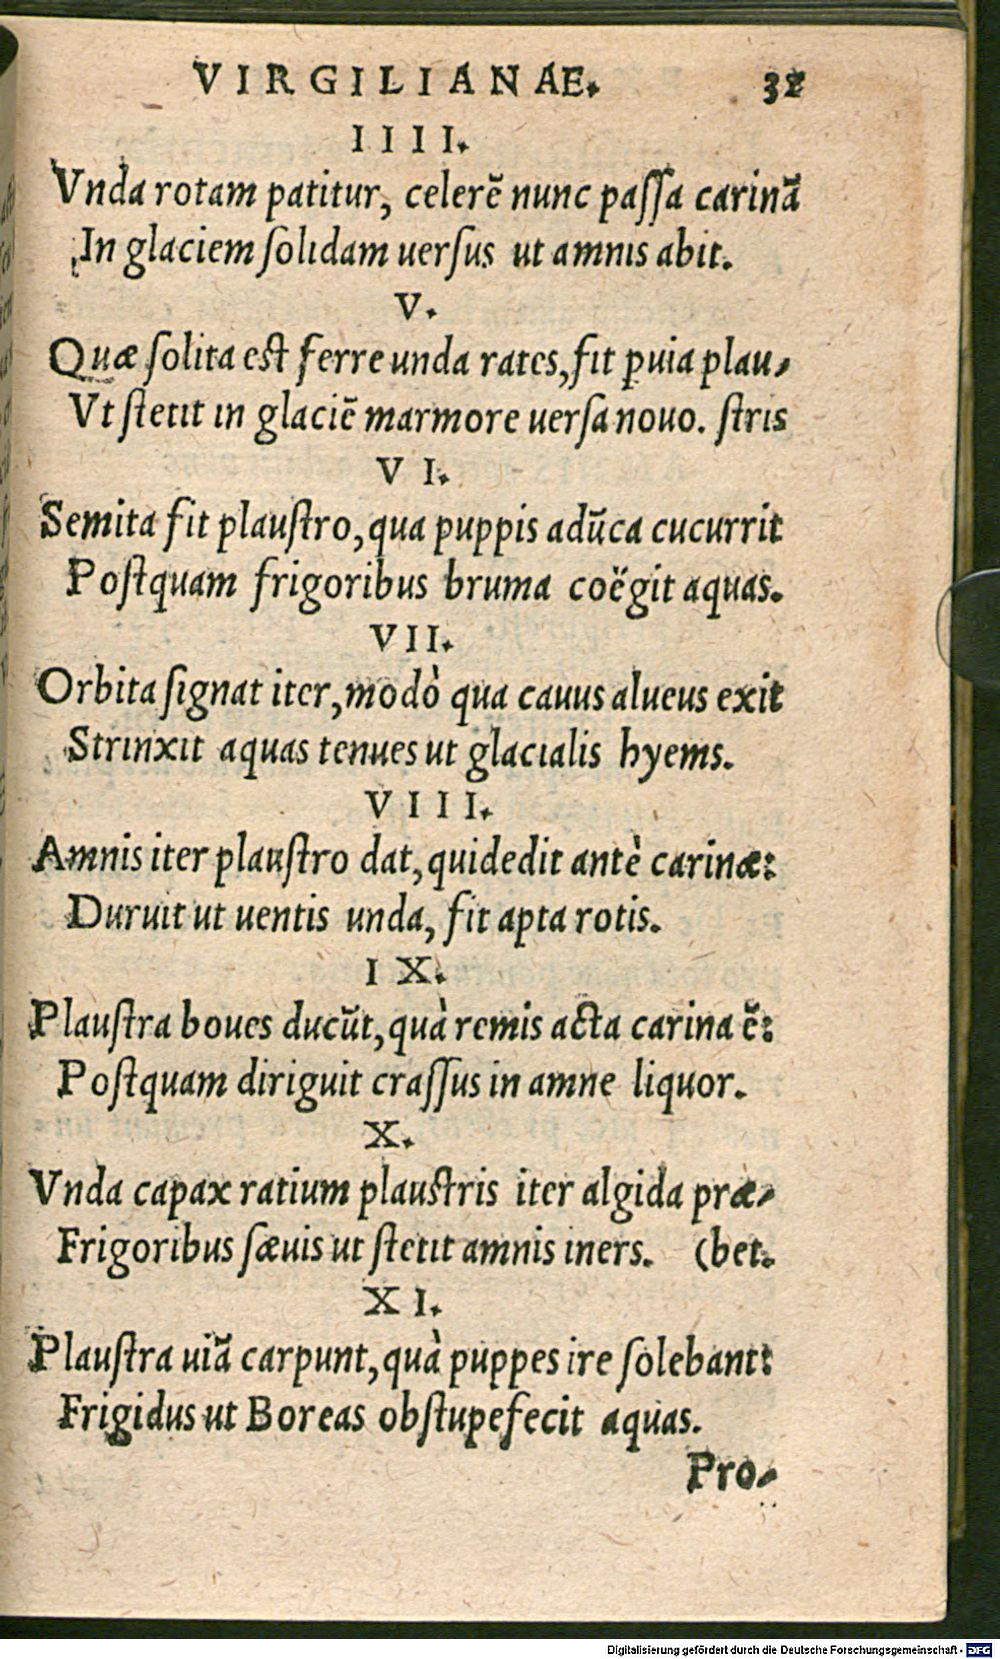 VIRGILIANAE. 32
IIII.
Vnda rotam patitur, celerẽ nunc paſſa carinã
In glaciem ſolidam uerſus ut amnis abit.
V.
Quæ ſolita est ferre unda rates, fit puia plau-
Vt ſtetit in glaciẽ marmore uerſa nouo. ſtris
VI.
Semita fit plauſtro, qua puppis adũca cucurrit
Poſtquam frigoribus bruma coëgit aquas.
VII.
Orbita ſignat iter, modò qua cauus alueus exit
Strinxit aquas tenues ut glacialis hyems.
VIII.
Amnis iter plauſtro dat, quidedit antè carinæ:
Duruit ut uentis unda, fit apta rotis.
IX.
Plauſtra boues ducũt, quà remis acta carina ẽ:
Poſtquam diriguit craſſus in amne liquor.
X.
Vnda capax ratium plauſtris iter algida præ-
Frigoribus ſæuis ut ſtetit amnis iners. (bet.
XI.
Plauſtra uiã carpunt, quà puppes ire ſolebant:
Frigidus ut Boreas obſtupefecit aquas.
Pro-
Digitalisierung gefördert durch die Deutsche Forschungsgemeinschaft - DFG